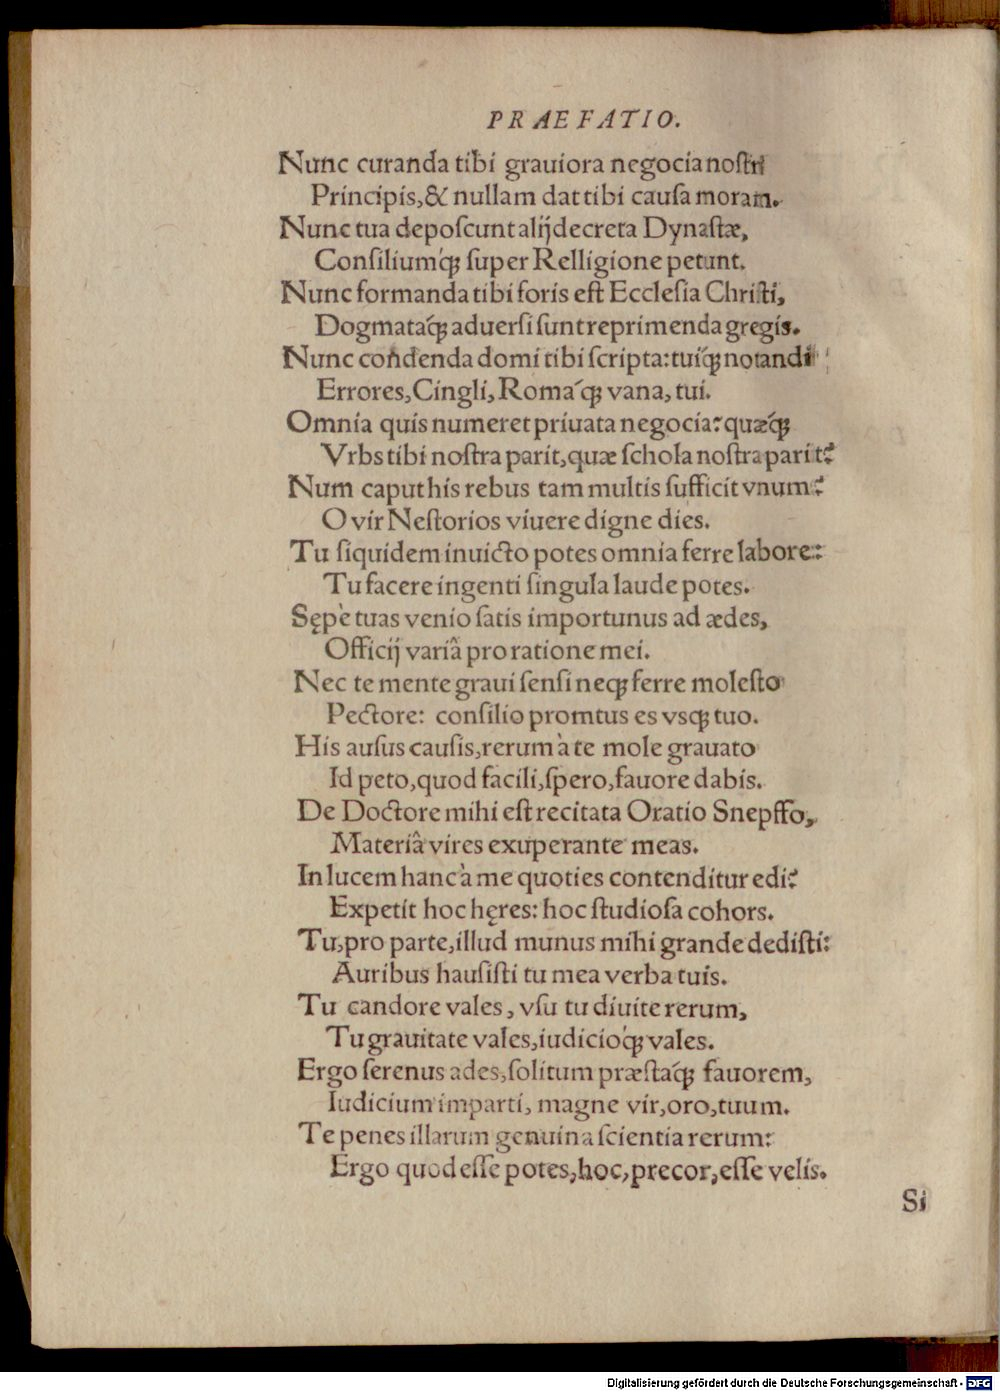 PRAEFATIO.
Nunc curanda tibi grauiora negocia nostri
Principis, & nullam dat tibi causa moram.
Nunc tua deposcunt alij decreta Dynastæ,
Consiliumq́; super Relligione petunt.
Nunc formanda tibi foris est Ecclesia Christi,
Dogmataq́; aduersi sunt reprimenda gregis.
Nunc condenda domi tibi scripta: tuiq́; notandi
Errores, Cingli, Romaq́; vana, tui.
Omnia quis numeret priuata negocia: quæq́;
Vrbs tibi nostra parit, quæ schola nostra parit?
Num caput his rebus tam multis sufficit vnum?
O vir Nestorios viuere digne dies.
Tu siquidem inuicto potes omnia ferre labore:
Tu facere ingenti singula laude potes.
Sępè tuas venio satis importunus ad ædes,
Officij variâ pro ratione mei.
Nec te mente graui sensi neq; ferre molesto
Pectore: consilio promtus es vsq; tuo.
His ausus causis, rerum à te mole grauato
Id peto, quod facili, spero, fauore dabis.
De Doctore mihi est recitata Oratio Snepffo,
Materiâ vires exuperante meas.
In lucem hanc à me quoties contenditur edi?
Expetit hoc hęres: hoc studiosa cohors.
Tu, pro parte, illud munus mihi grande dedisti:
Auribus hausisti tu mea verba tuis.
Tu candore vales, vsu tu diuite rerum,
Tu grauitate vales, iudicioq́; vales.
Ergo serenus ades, solitum præstaq́; fauorem,
Iudicium imparti, magne vir, oro, tuum.
Te penes illarum genuina scientia rerum:
Ergo quod esse potes, hoc, precor, esse velis.
Si
Digitalisierung gefördert durch die Deutsche Forschungsgemeinschaft - DFG